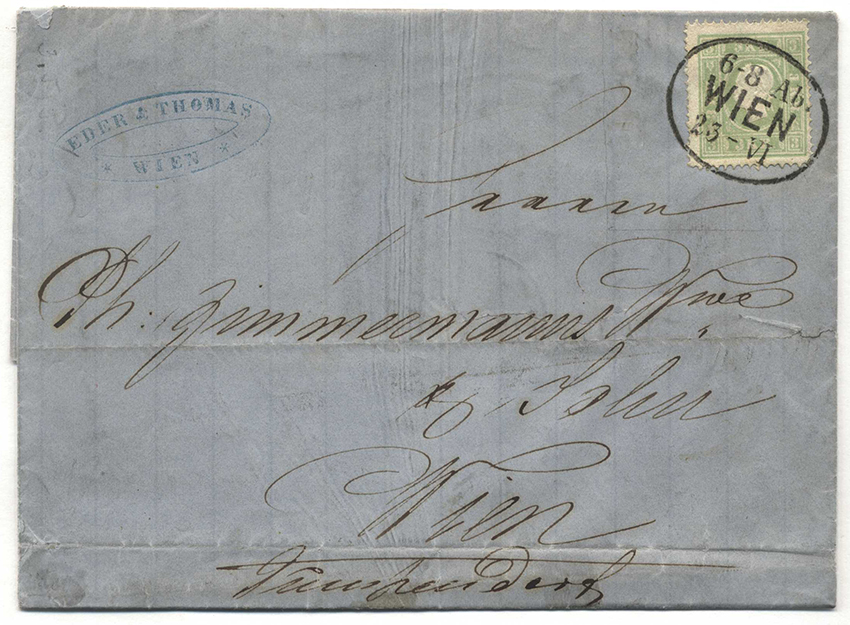 EDER & THOMAS
* WIEN *
6-8 Ab.
WIEN
23-VI
Herrn
Ph: Zimmermanns Wwe
& Sohn
Wien
Gumpendorf